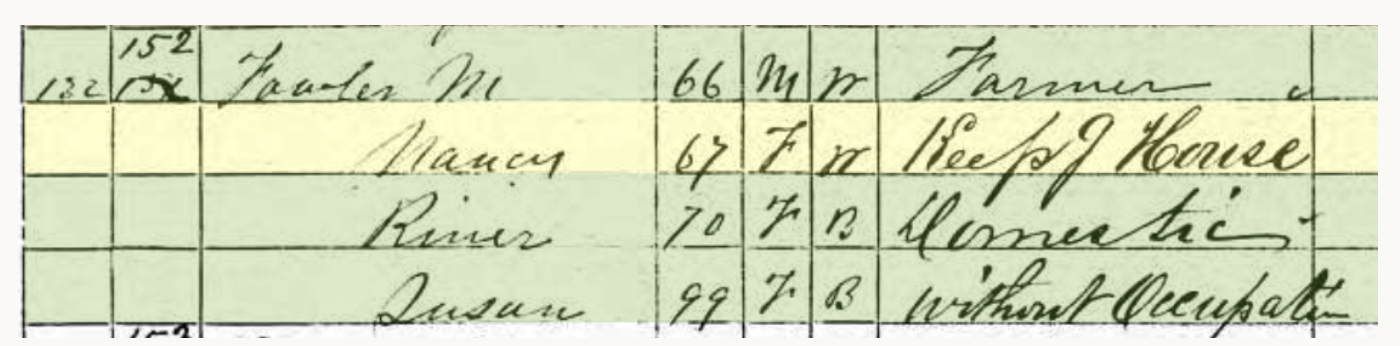 152
132 Fowler M 66 M W Farmer
Nancy 67 F W Keepg House
Riner 70 F B Domestic
Susan 99 F B without Occupatin